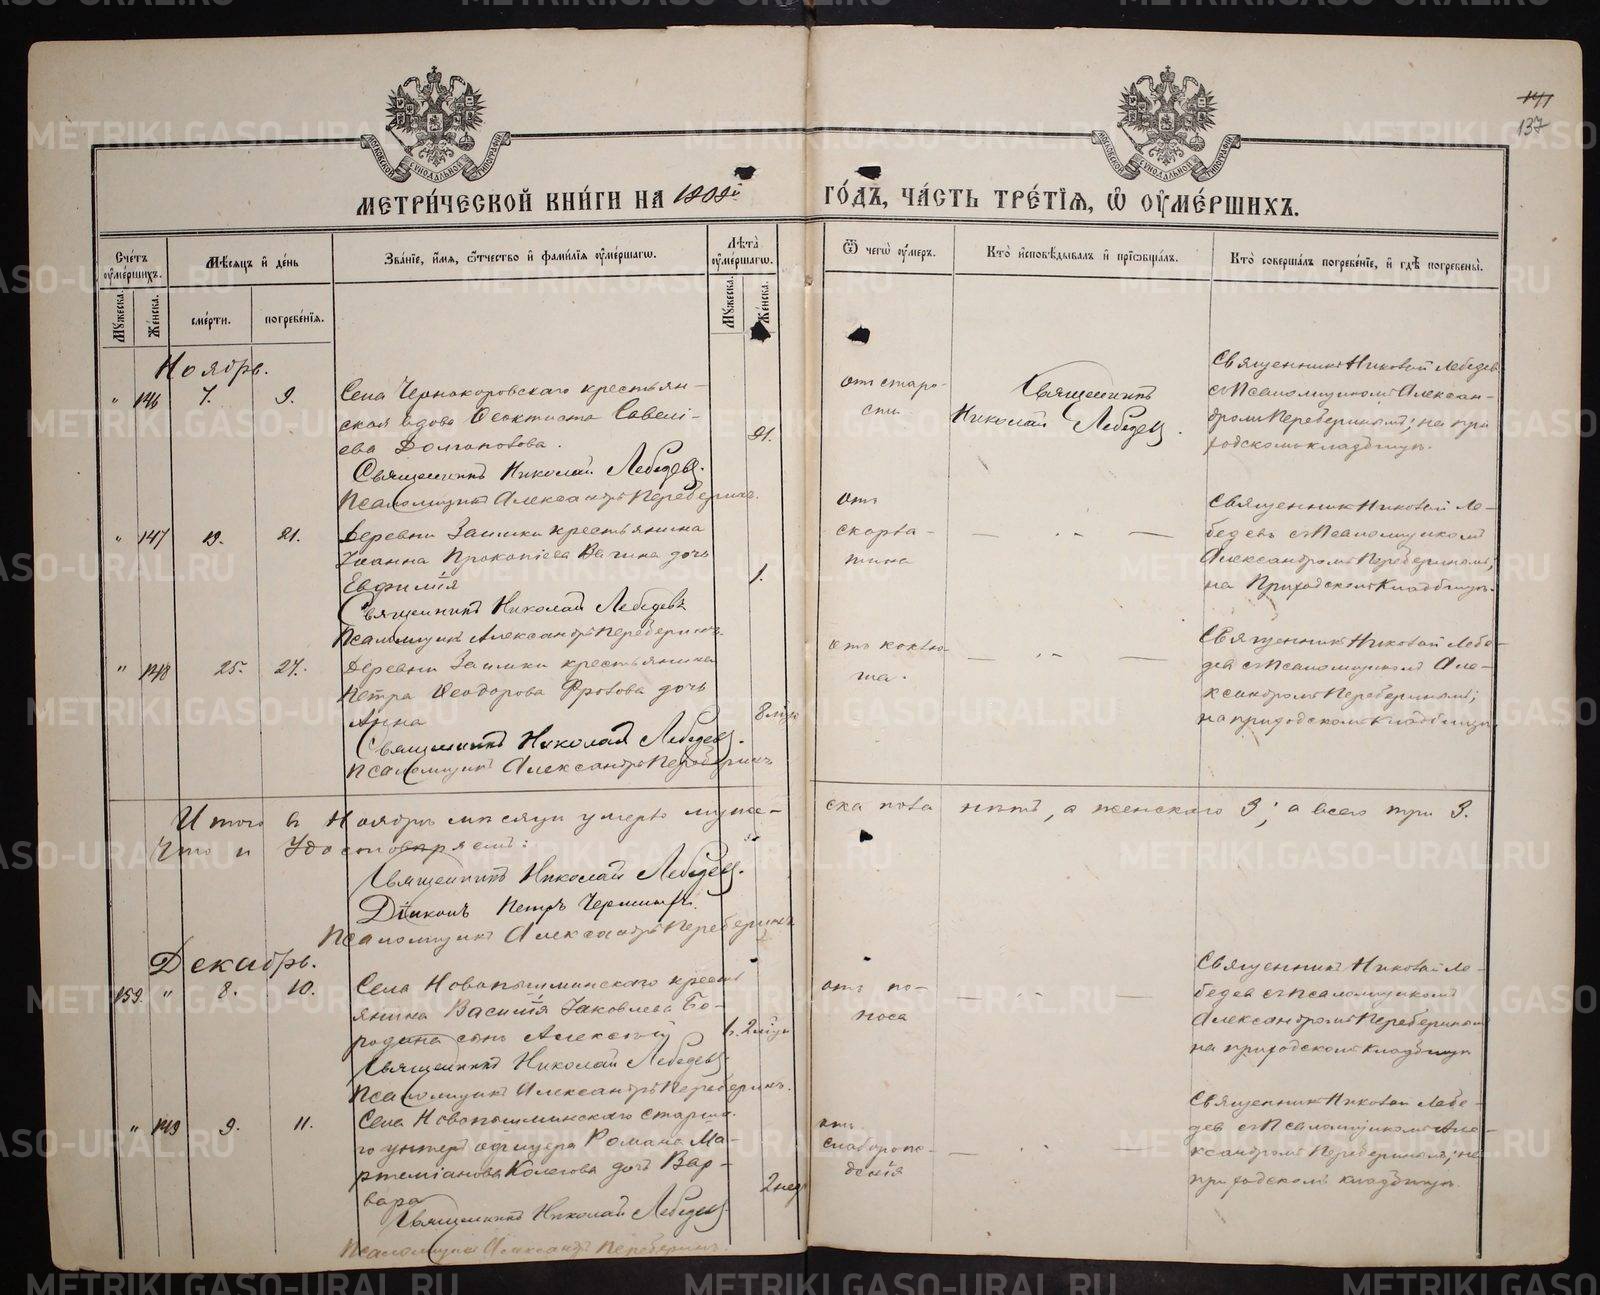 141
137
МОСКОВСКОЙ СѴНОДАЛЬНОЙ ТИПОГРАФІИ
МОСКОВСКОЙ СѴНОДАЛЬНОЙ ТИПОГРАФІИ
МЕТРИ́ЧЕСКОЙ КНИ́ГИ НА 1909й ГО́ДЪ, ЧА́СТЬ ТРЕ́ТІѦ, Ѡ҆ ОУ҆МЕ́РШИХЪ.
Сче́тъ оу҆ме́ршихъ.
Мѣ́сѧцъ и҆ де́нь
Зва́нїе, и҆́мѧ, ѻ҆́тчество и҆ фами́лїѧ оу҆ме́ршагѡ.
Лѣ́та оу҆ме́ршагѡ.
Ѿ чегѡ̀ оу҆́меръ.
Кто̀ и҆сповѣ́дывалъ и҆ прїѡбща́лъ.
Кто̀ соверша́лъ погребе́нїе, и҆ гдѣ̀ погребены̀.
Мꙋ́жеска.
Же́нска.
сме́рти.
погребе́нїѧ.
Мꙋ́жеска.
Же́нска.
Ноябрь.
" 146 7. 9.
Села Чернокоровскаго крестьян-
ская вдова Ѳеоктиста Савелі-
ева Долгополова.
91.
Священникъ Николай Лебедевъ.
Псаломщикъ Александръ Переберинъ.
отъ старо-
сти
Священникъ
Николай Лебедевъ.
Священникъ Николай Лебедевъ
съ Псаломщикомъ Алексан-
дромъ Переберинымъ; на при
ходскомъ кладбищѣ.
" 147 19. 21.
Деревни Заимки крестьянина
Іоанна Прокопіева Вагина дочь
Евфимія
1.
Священникъ Николай Лебедевъ
Псаломщикъ Александръ Переберинъ.
отъ
скарла-
тина
Священникъ Николай Ле-
бедевъ съ Псаломщикомъ
Александромъ Переберинымъ;
на Приходскомъ Кладбищѣ.
" 148 25. 27.
Деревни Заимки крестьянина
Петра Ѳеодорова Фролова дочь
Анна
8 мѣс
Священникъ Николай Лебедевъ.
Псаломщикъ Александръ Переберинъ
отъ коклю-
ша.
Священникъ Николай Лебе-
девъ съ Псаломщикомъ Але-
ксандромъ Переберинымъ;
на приходскомъ Кладбищѣ.
Итого въ Ноябрѣ мѣсяцѣ умерло муже-
ска пола нѣтъ, а женскаго 3; а всего три 3.
Что и удостовѣряемъ:
Священникъ Николай Лебедевъ.
Діаконъ Петръ
Псаломщикъ Александръ Переберинъ
Декабрь.
159. " 8. 10.
Села Новопышминскаго кресть
янина Василія Іаковлева Бо-
родина сынъ Алексѣй
Священникъ Николай Лебедевъ.
Псаломщикъ Александръ Переберинъ.
отъ по-
носа
Священникъ Николай Ле-
бедевъ съ Псаломщикомъ
Александромъ Переберинымъ
на приходскомъ Кладбищѣ
" 149 9. 11.
Села Новопышминскаго старша-
го унтеръ офицера Романа Ма-
ртеміанова Колегова дочь Вар-
вара
2 нед
Священникъ Николай Лебедевъ.
Псаломщикъ Александръ Переберинъ.
отъ
слаборож-
денія
Священникъ Николай Лебе-
девъ съ Псаломщикомъ Але-
ксандромъ Переберинымъ; на
приходскомъ кладбищѣ.
METRIKI.GASO-URAL.RU